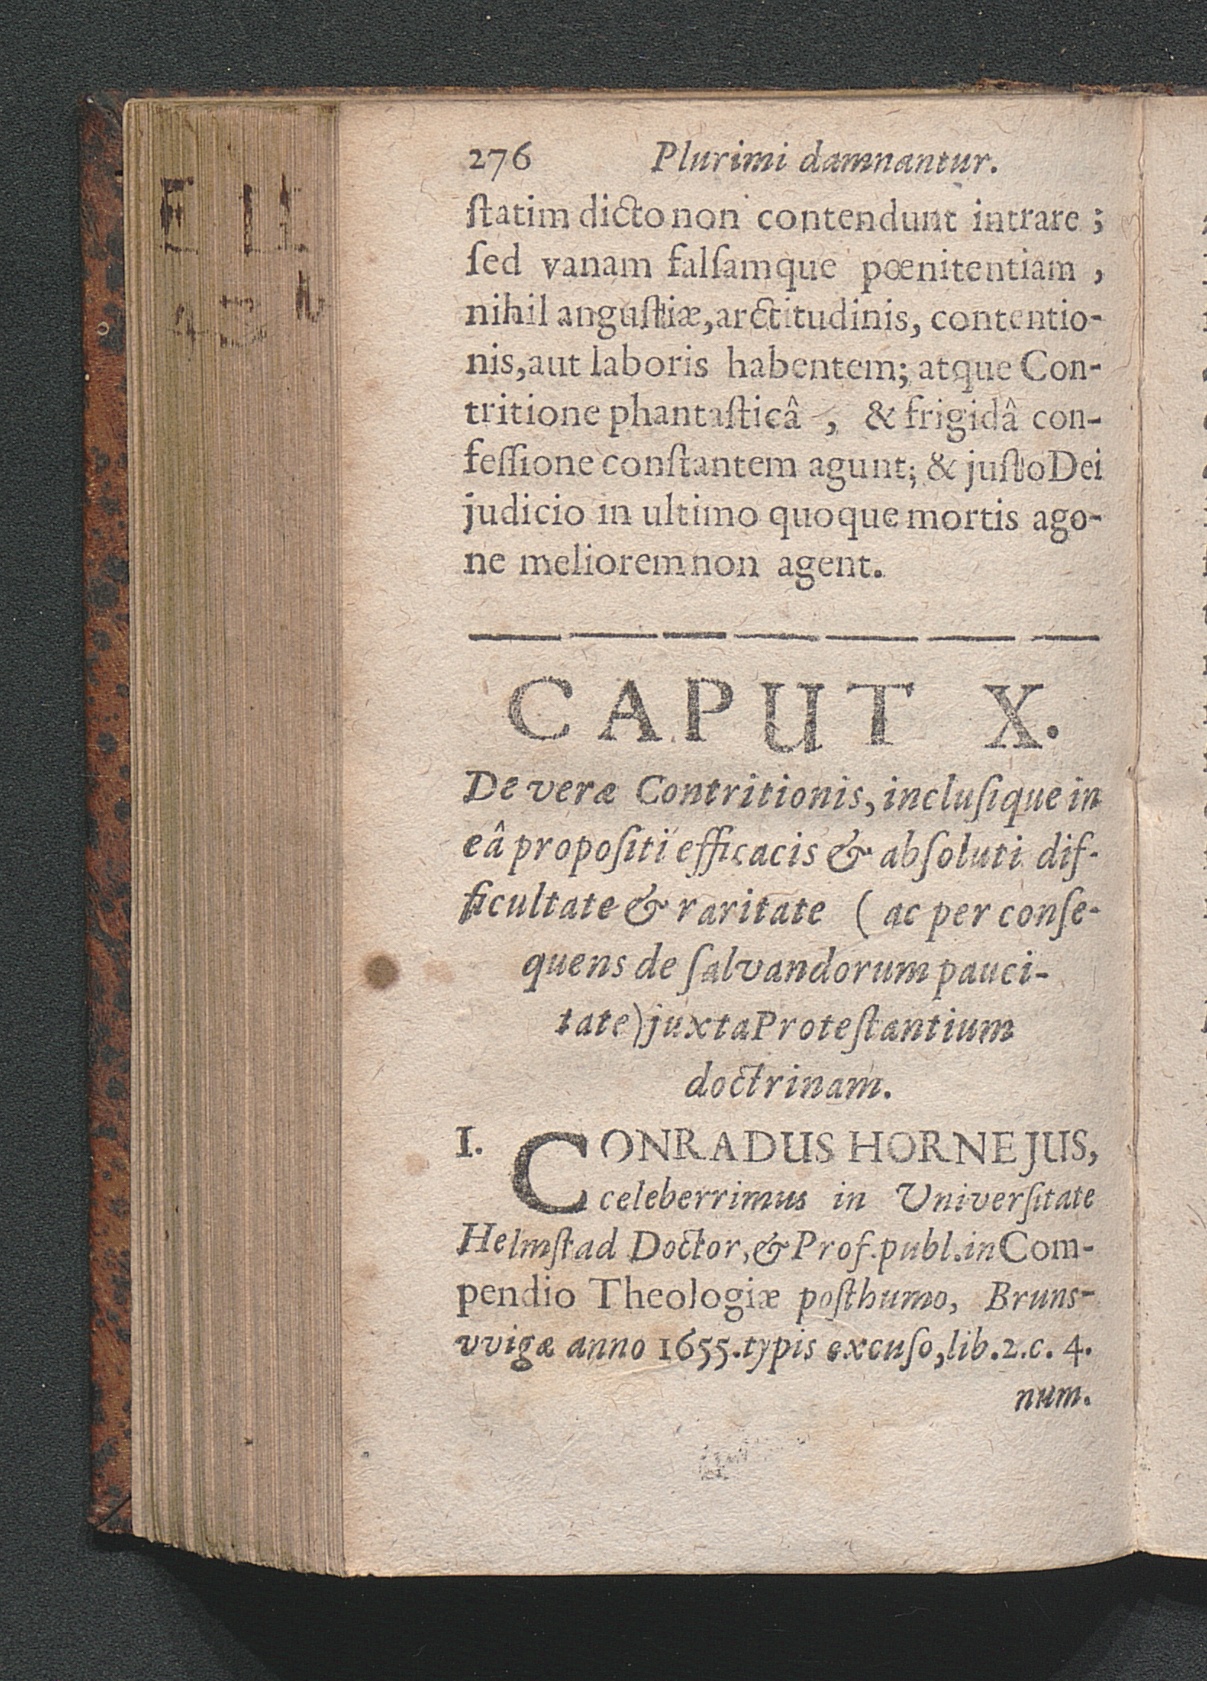 276 Plurimi damnantur.
ſtatim dicto non contendunt intrare ;
ſed vanam falſamque pœnitentiam ,
nihil anguſtiæ, arctitudinis, contentio-
nis, aut laboris habentem; atque Con-
tritione phantaſticâ , & frigidâ con-
feſſione conſtantem agunt; & juſto Dei
judicio in ultimo quoque mortis ago-
ne meliorem non agent.
CAPUT X.
De veræ Contritionis, incluſique in
eâ propoſiti efficacis & abſoluti dif-
ficultate & raritate ( ac per conſe-
quens de ſalvandorum pauci-
tate) juxta Proteſtantium
doctrinam.
I. CONRADUS HORNEJUS,
celeberrimus in Univerſitate
Helmſtad Doctor, & Prof. publ. in Com-
pendio Theologiæ poſthumo, Bruns-
vvigæ anno 1655. typis excuſo, lib. 2. c. 4.
num.